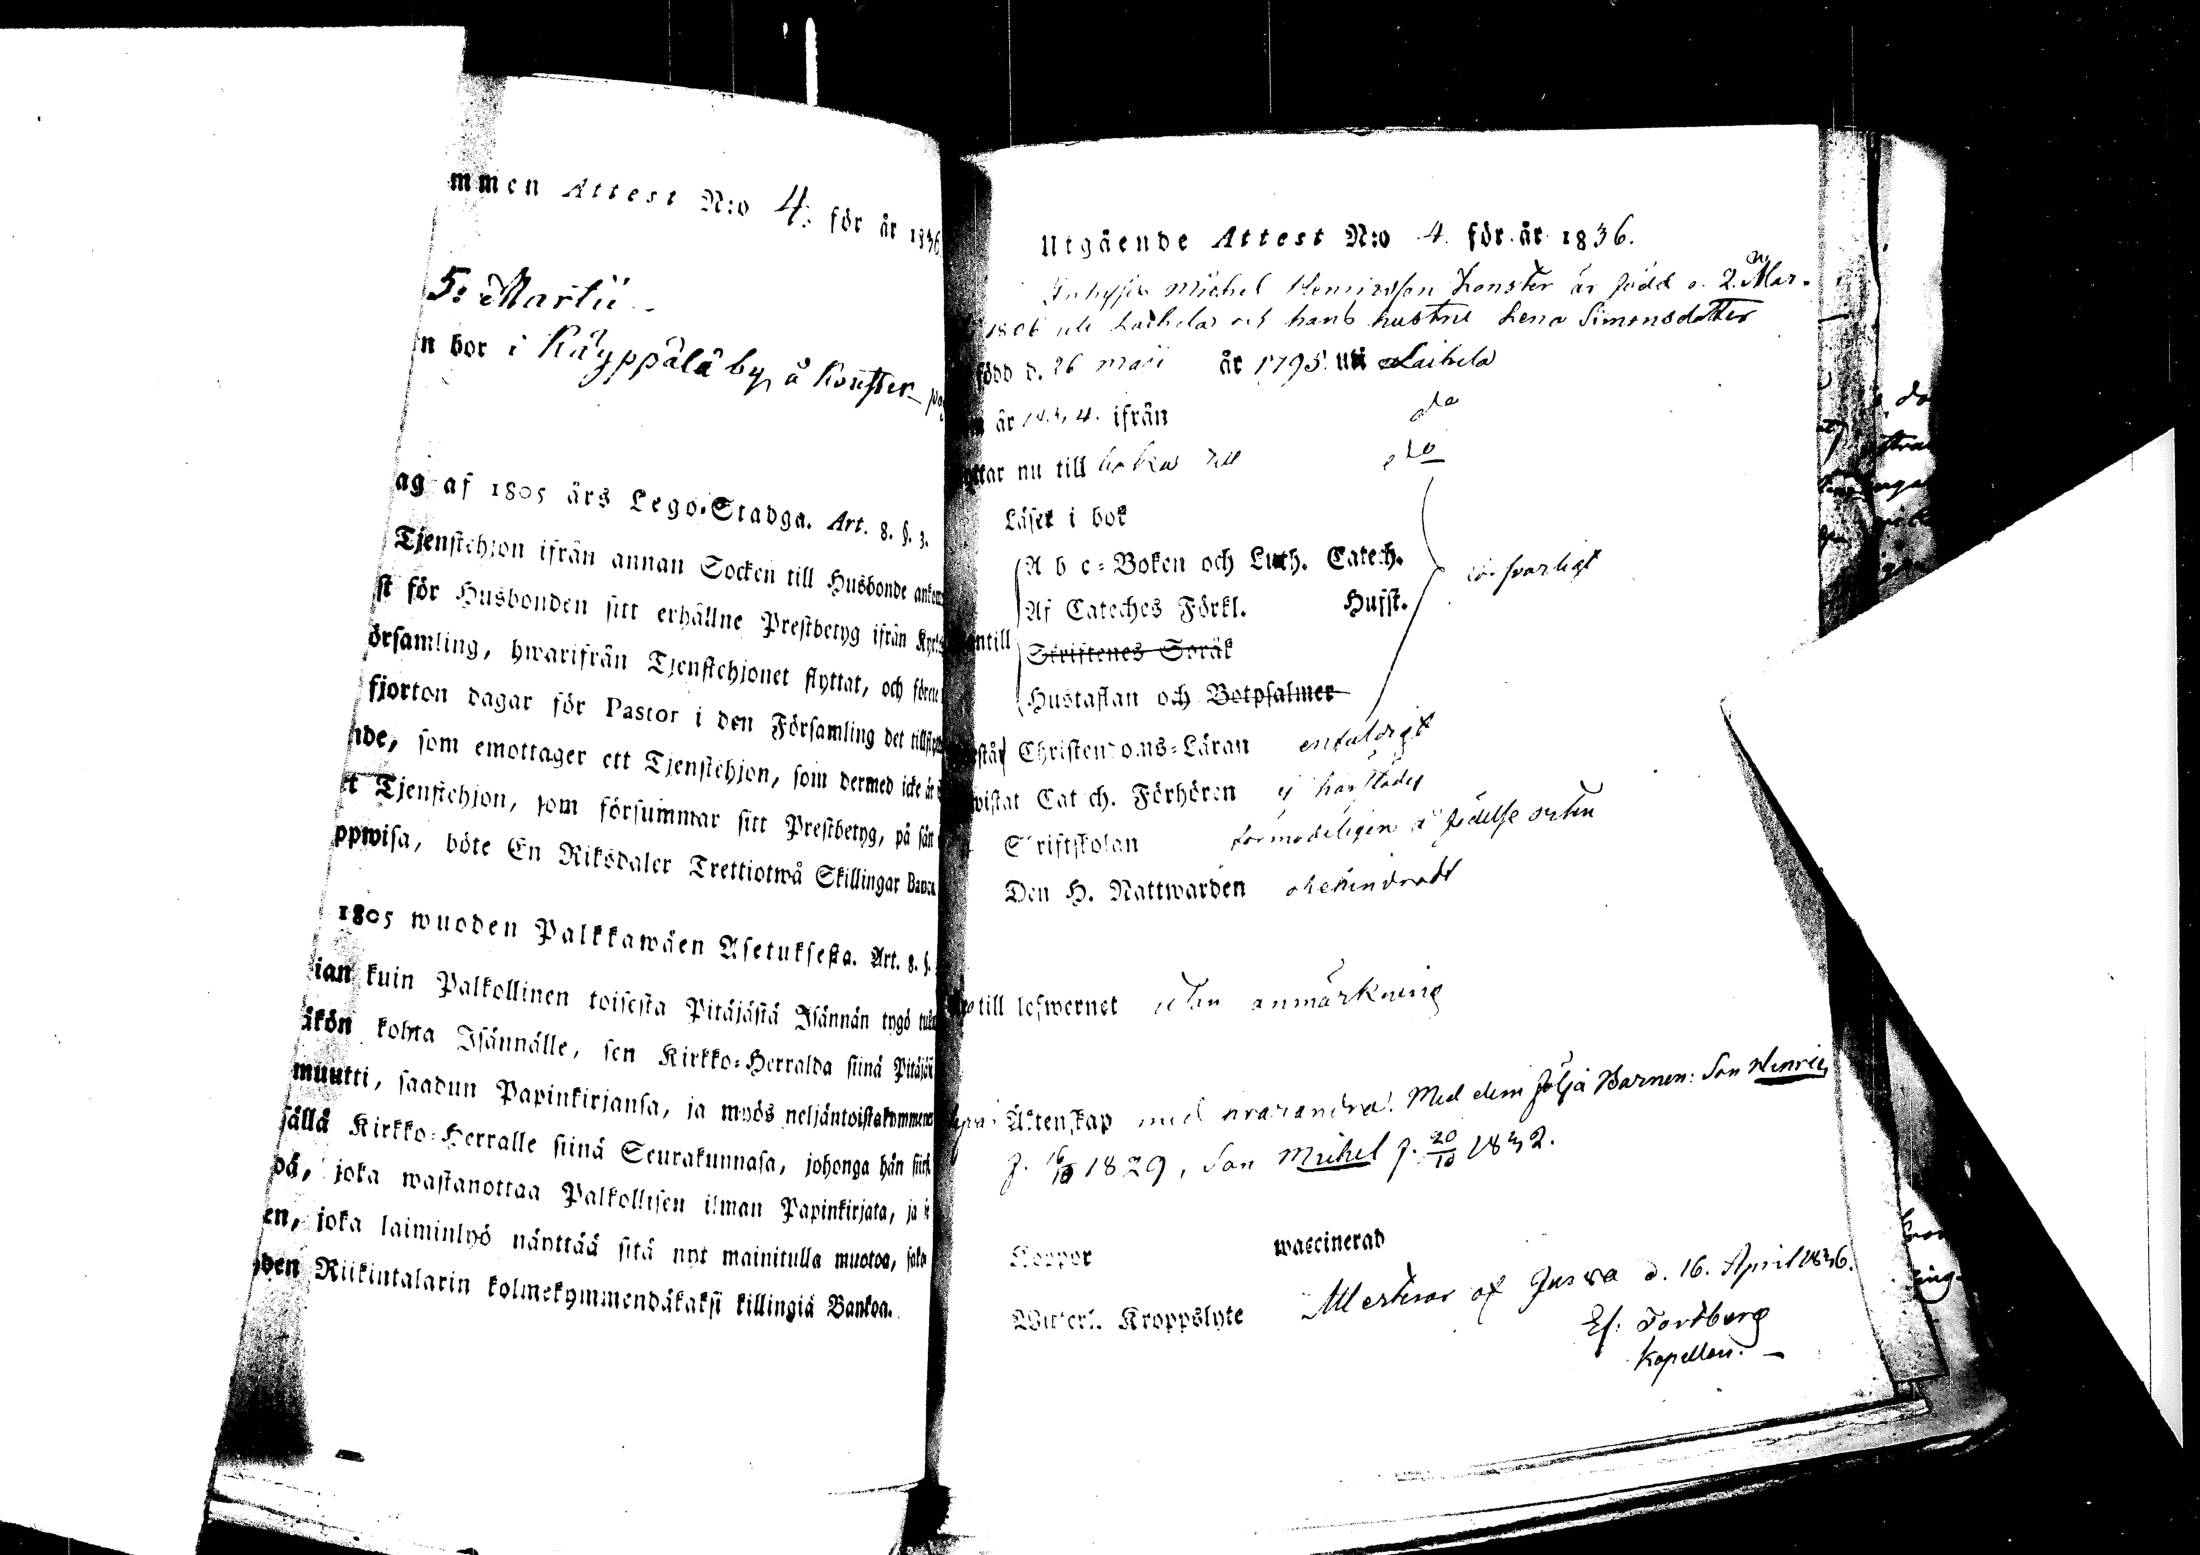 mmen Attest N:o 4: för år 1836
5: Martii
n bor i Käyppälä by, å Konster
ag af 1805 års Lego-Stadga. Art. 8. §. 3.
Tjenstehjon ifrån annan Socken till Husbonde
st för Husbonden sitt erhållne Prestbetyg ifrån
örsamling, hwarifrån Tjenstehjonet flyttat, och
fjorton dagar för Pastor i den Församling det
nde, som emottager ett Tjenstehjon, som dermed icke är
t Tjenstehjon, som försummar sitt Prestbetyg, på sätt
ppwisa, böte En Riksdaler Trettiotwå Skillingar Banco
1805 wuoden Palkkawäen Asetuksesta. Art. 8. §.
ian kuin Palkollinen toisesta Pitäjästä Isännän tygö
äkön kohta Isännälle, sen Kirkko-Herralda siinä
muutti, saadun Papinkirjansa, ja myös neljäntoistakymmenen
ällä Kirkko-Herralle siinä Seurakunnasa, johonga hän
dä, joka wastanottaa Palkollisen ilman Papinkirjata, ja
en, joka laiminlyö näyttää sitä nyt mainitulla muotoa,
den Riikintalarin kolmekymmendäkaksi killingiä Bankoa.
Utgående Attest N:o 4. för år 1836.
Michel Henricsson Konster är född d. 2. Mar-
1806 uti Laihela och hans hustru Lena Simonsdotter
född d. 26 Maji år 1795 uti Laihela
år 1834. ifrån do
ttar nu till baka till do
Läser i bok
A b c-Boken och Luth. Catech. försvarligt
Af Cateches Förkl. Husst.
ntill
Skriftenes Språk
Hustaflan och Botpsalmer
står Christendoms-Läran enfaldigt
wistat Catech. Förhören ej härstädes
Skriftskolan förmodeligen å födelse orten
Den H. Nattwarden obehindradt
till lefwernet utan anmärkning
Äktenskap med hvarandra. Med dem följa Barnen: Son Henric,
f. 16/10 1829, Son Michel f. 20/10 1832.
Koppor waccinerad
Witterl. Kroppslyte Attesterar af Jurva d. 16. April 1836.
Kapellan.